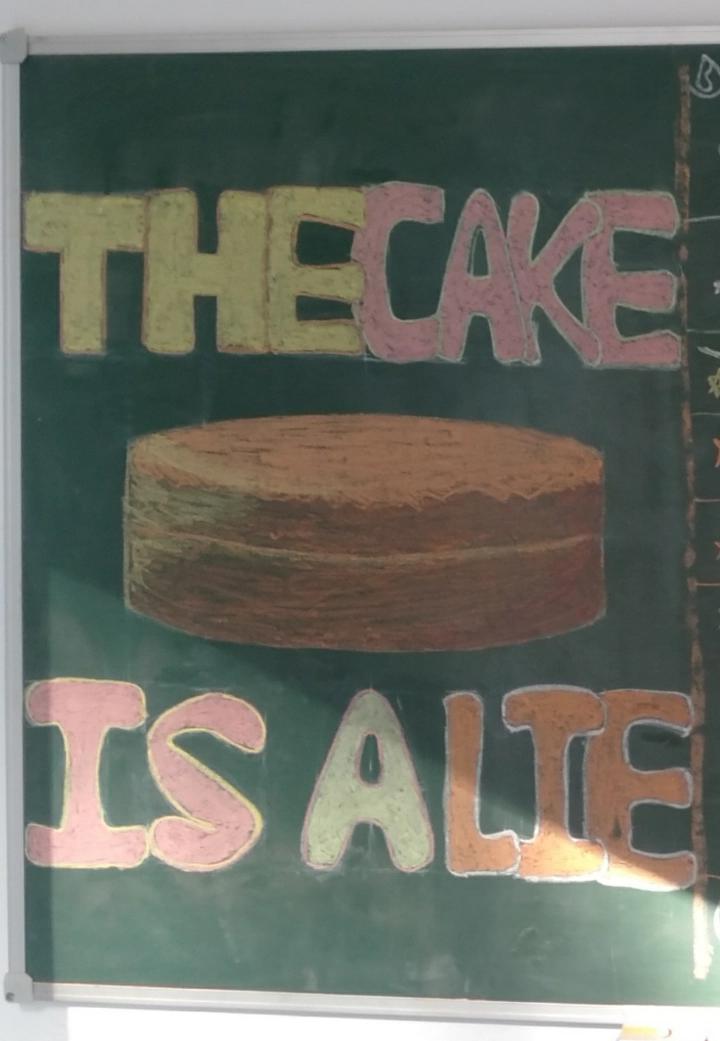 THE CAKE
IS A LIE
B